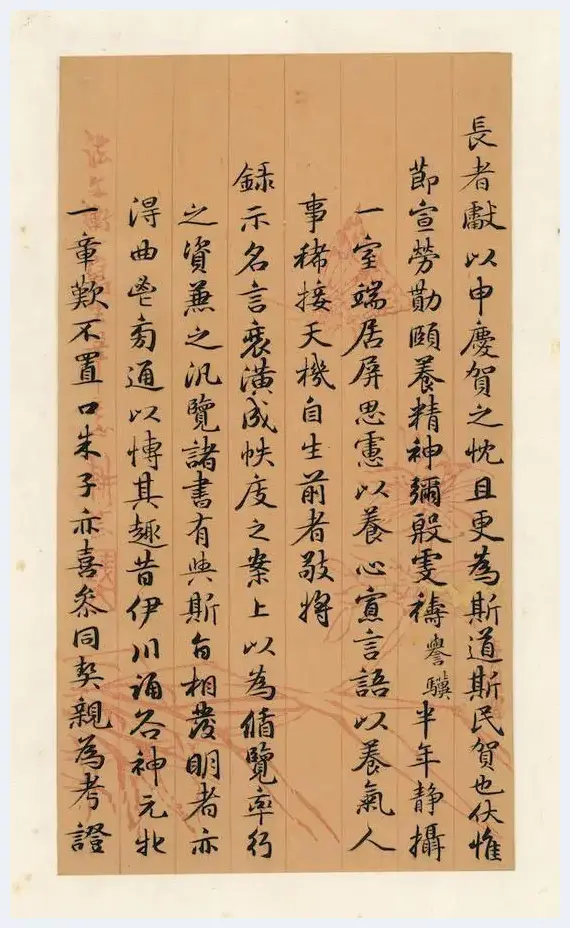 長者獻以申慶賀之忱且更為斯道斯民賀也伏惟
節宣勞勩頤養精神彌殷雯禱譽驥半年静攝
一室端居屏思慮以養心寡言語以養氣人
事稀接天機自生前者敬將
錄示名言裝潢成帙度之案上以為循覽率行
之資兼之汎覽諸書有與斯旨相發明者亦
得曲鬯旁通以博其趣昔伊川誦谷神元牝
一章歎不置口朱子亦喜參同契親為考證